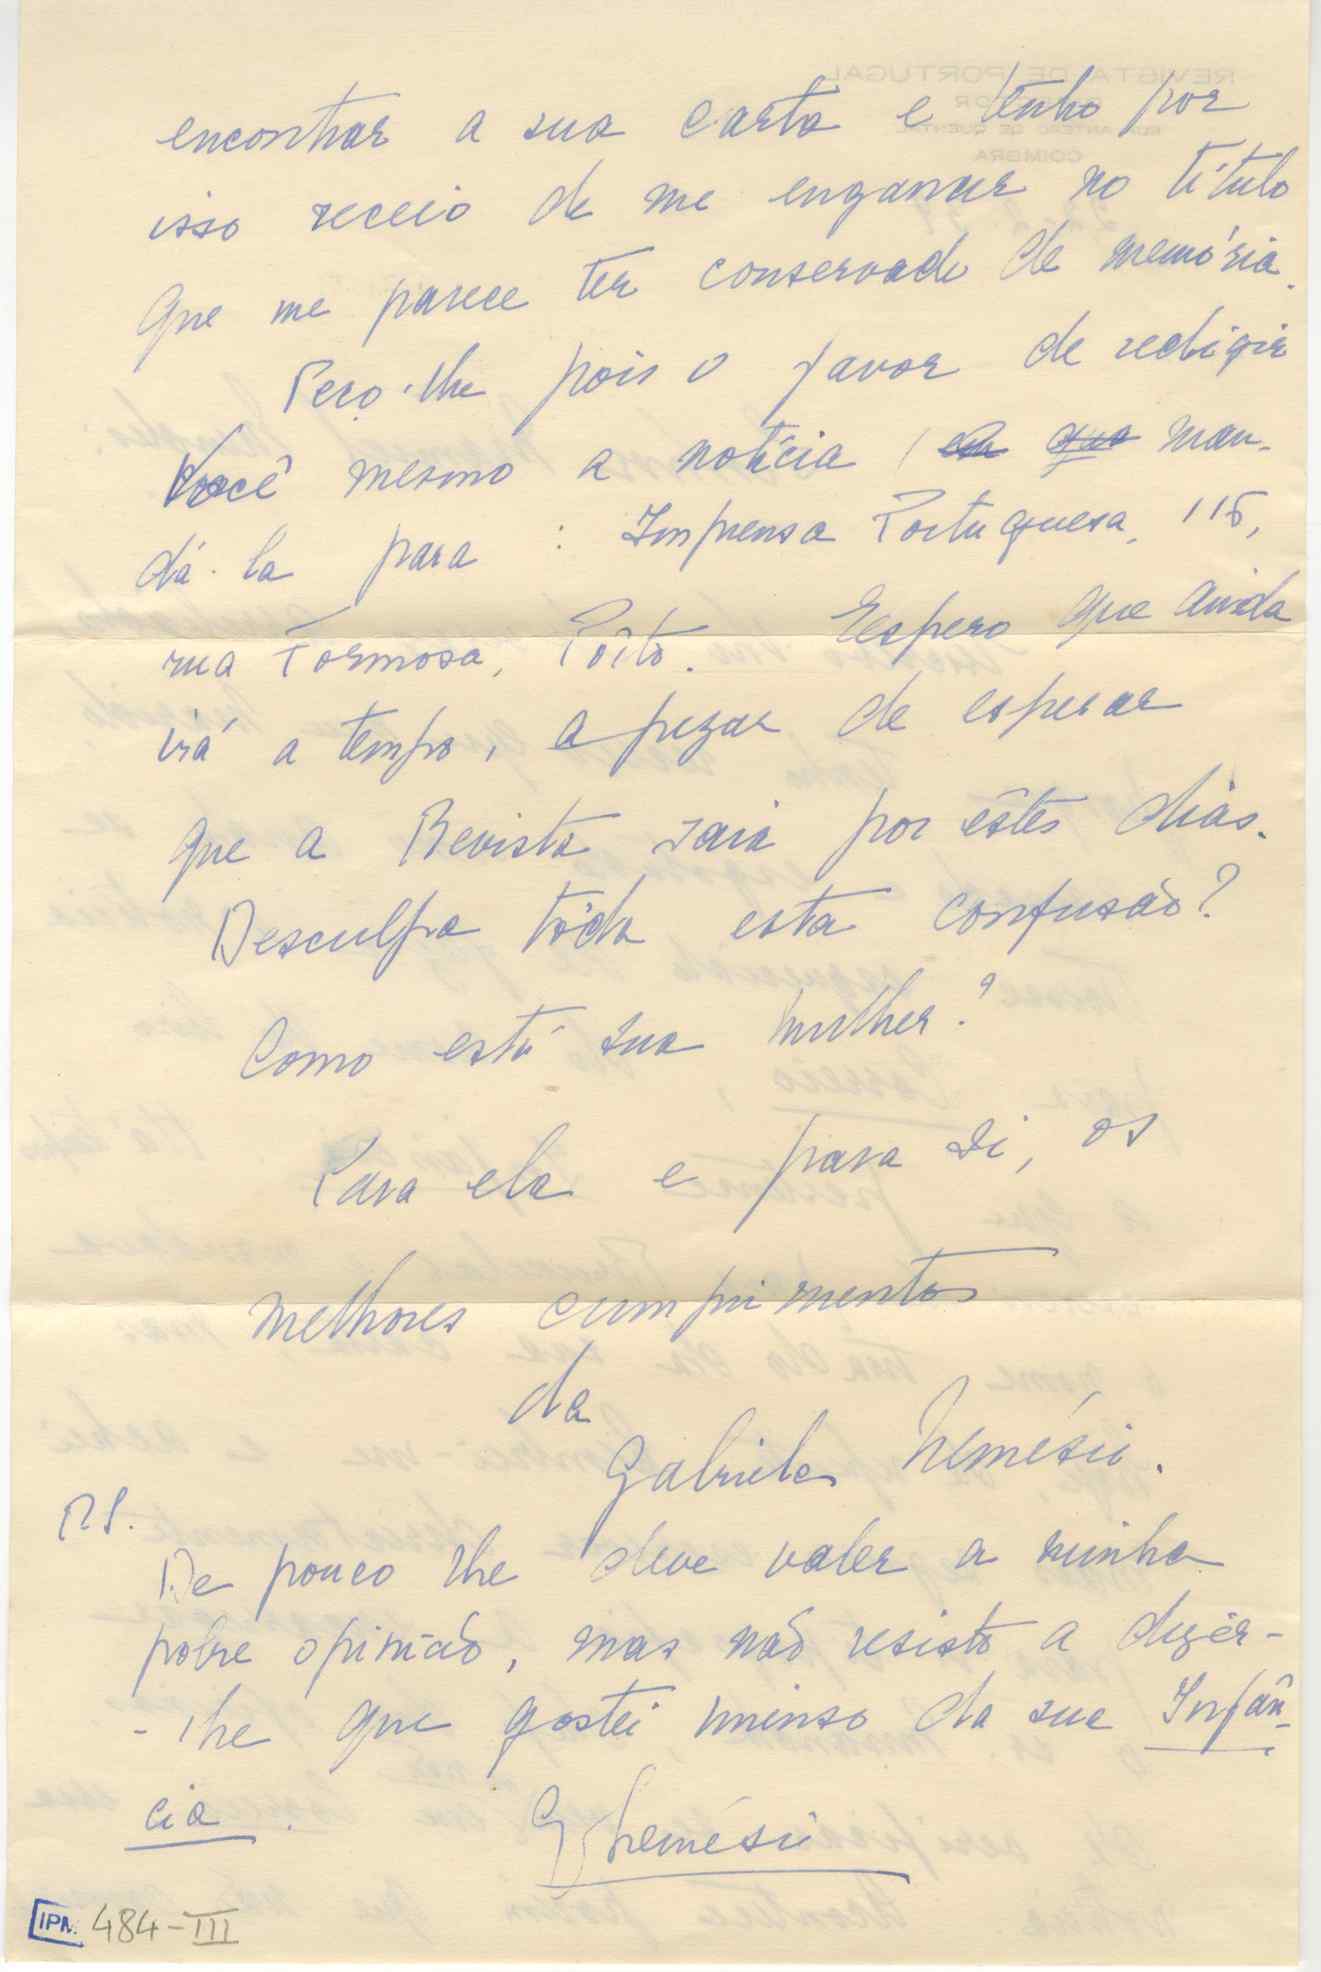 encontrar a sua carta e tenho por
isso receio de me enganar no título
que me parece ter conservado de memória.
Peço-lhe pois o favor de redigir
Você mesmo a notícia / em que man-
dá-la para : Imprensa Portuguesa, 116,
rua Formosa, Pôrto. Espero que ainda
irá a tempo, apezar de esperar
que a Revista saia por êstes dias.
Desculpa tôda esta confusão?
Como está sua mulher?
Para ela e para si, os
melhores cumprimentos
da
Gabriela Nemésio.
P.S.
De pouco lhe deve valer a minha
pobre opinião, mas não resisto a dizer-
-lhe que gostei imenso da sua Infân-
cia.
G Nemésio
IPN. 484-III
REVISTA DE PORTUGAL
ANTERO DE QUENTAL
COIMBRA